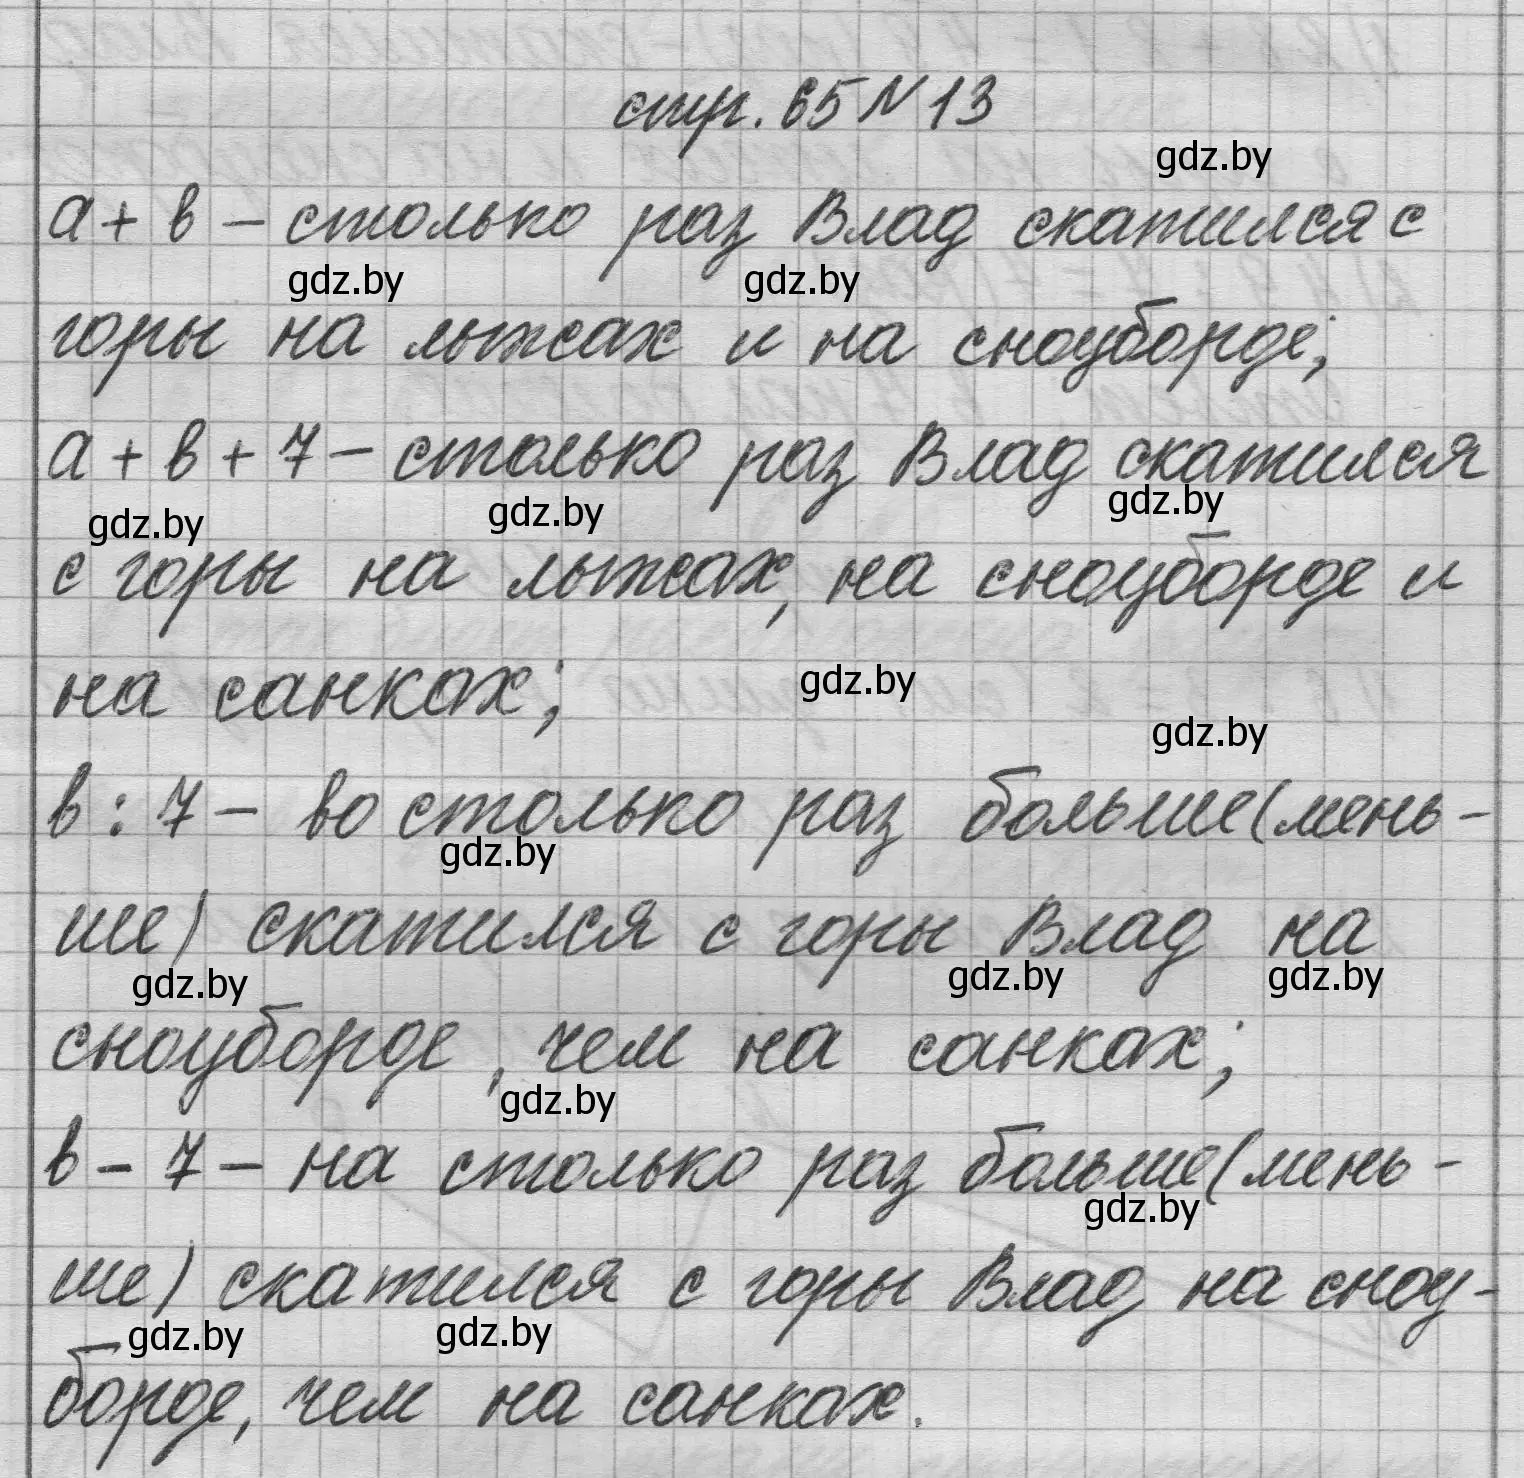 стр. 65 N 13
gdz.by
а + в – столько раз Влад скатился с
gdz.by gdz.by
горы на лыжах и на сноуборде;
а + в + 7 – столько раз Влад скатился
gdz.by gdz.by gdz.by
с горы на лыжах, на сноуборде и
на санках;
gdz.by
gdz.by
в : 7 – во столько раз больше (мень-
gdz.by
ше) скатился с горы Влад на
gdz.by gdz.by gdz.by
сноуборде, чем на санках;
gdz.by
в – 7 – на столько раз больше (мень-
gdz.by
ше) скатился с горы Влад на сноу-
gdz.by gdz.by
борде, чем на санках.